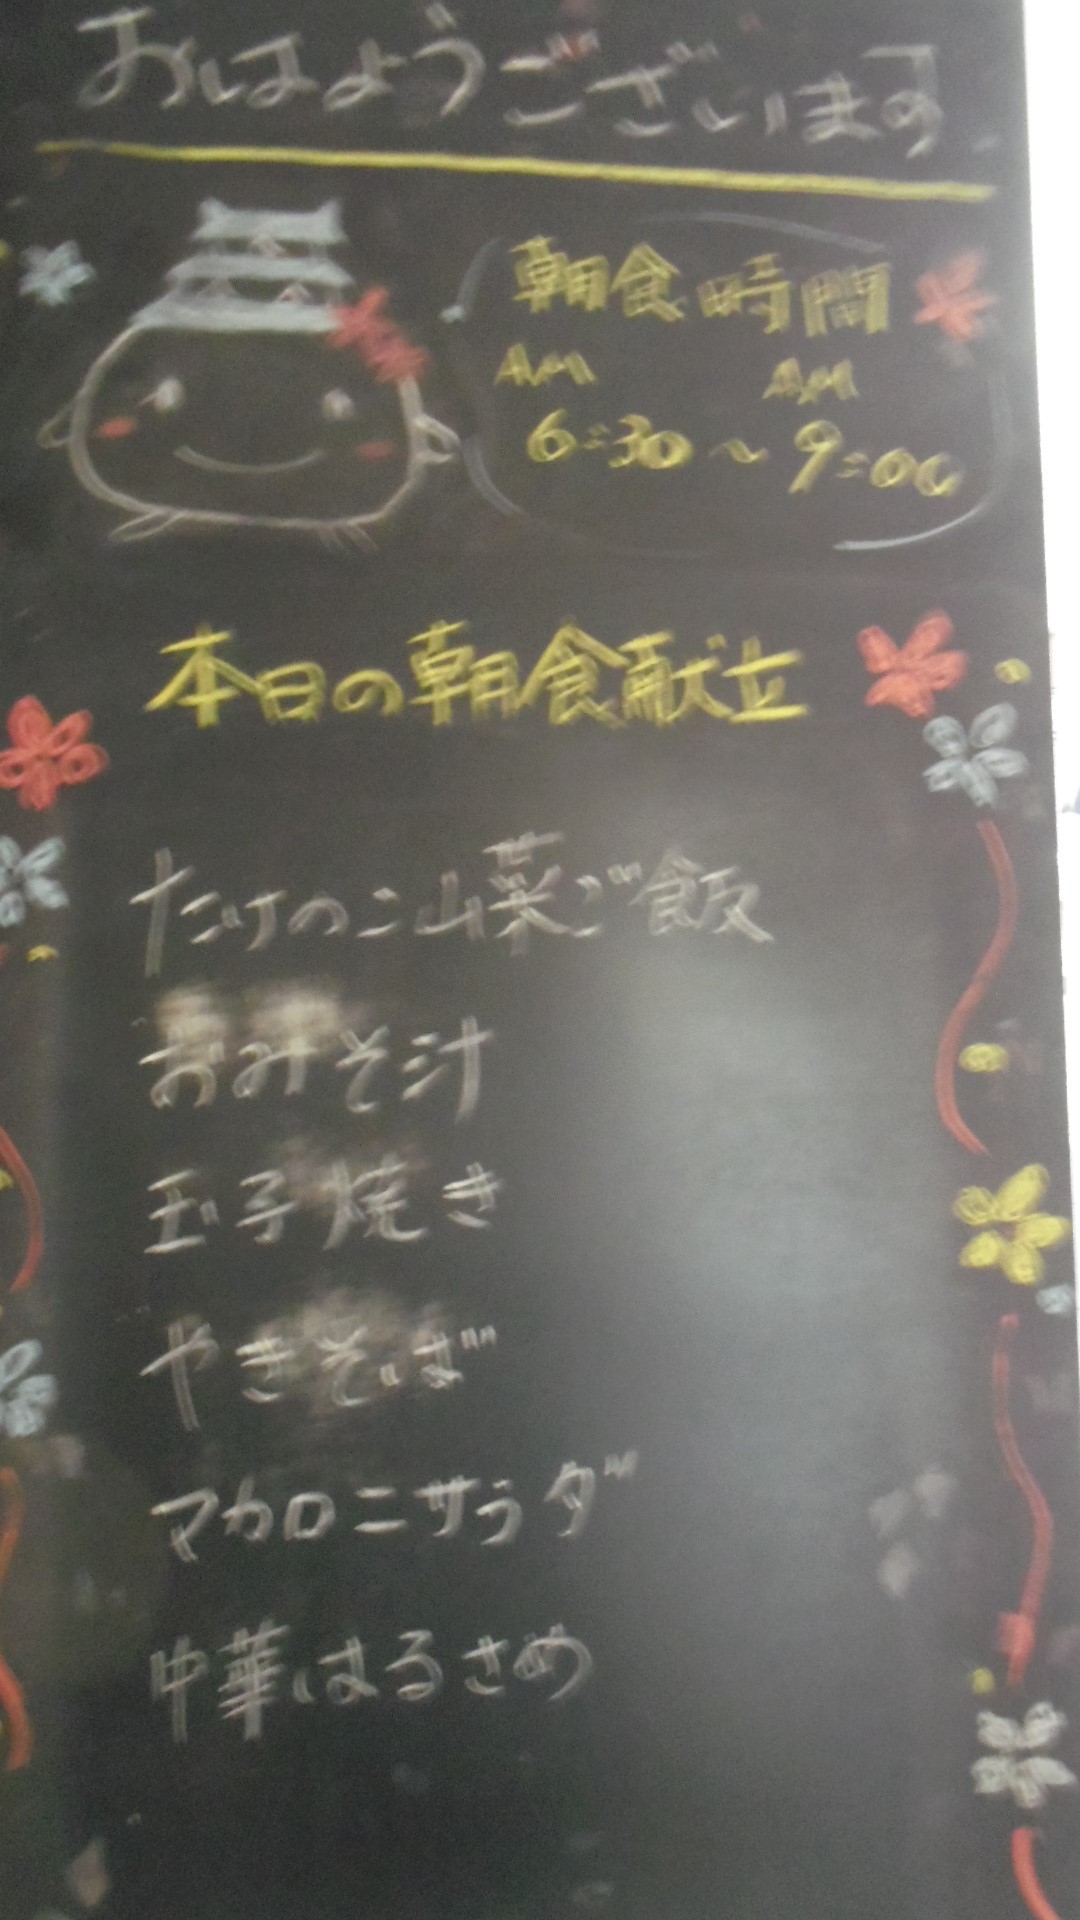 おはようございます
朝食時間
AM AM
6:30～9:00
本日の朝食献立
たけのこ山菜ご飯
おみそ汁
玉子焼き
やきそば
マカロニサラダ
中華はるさめ